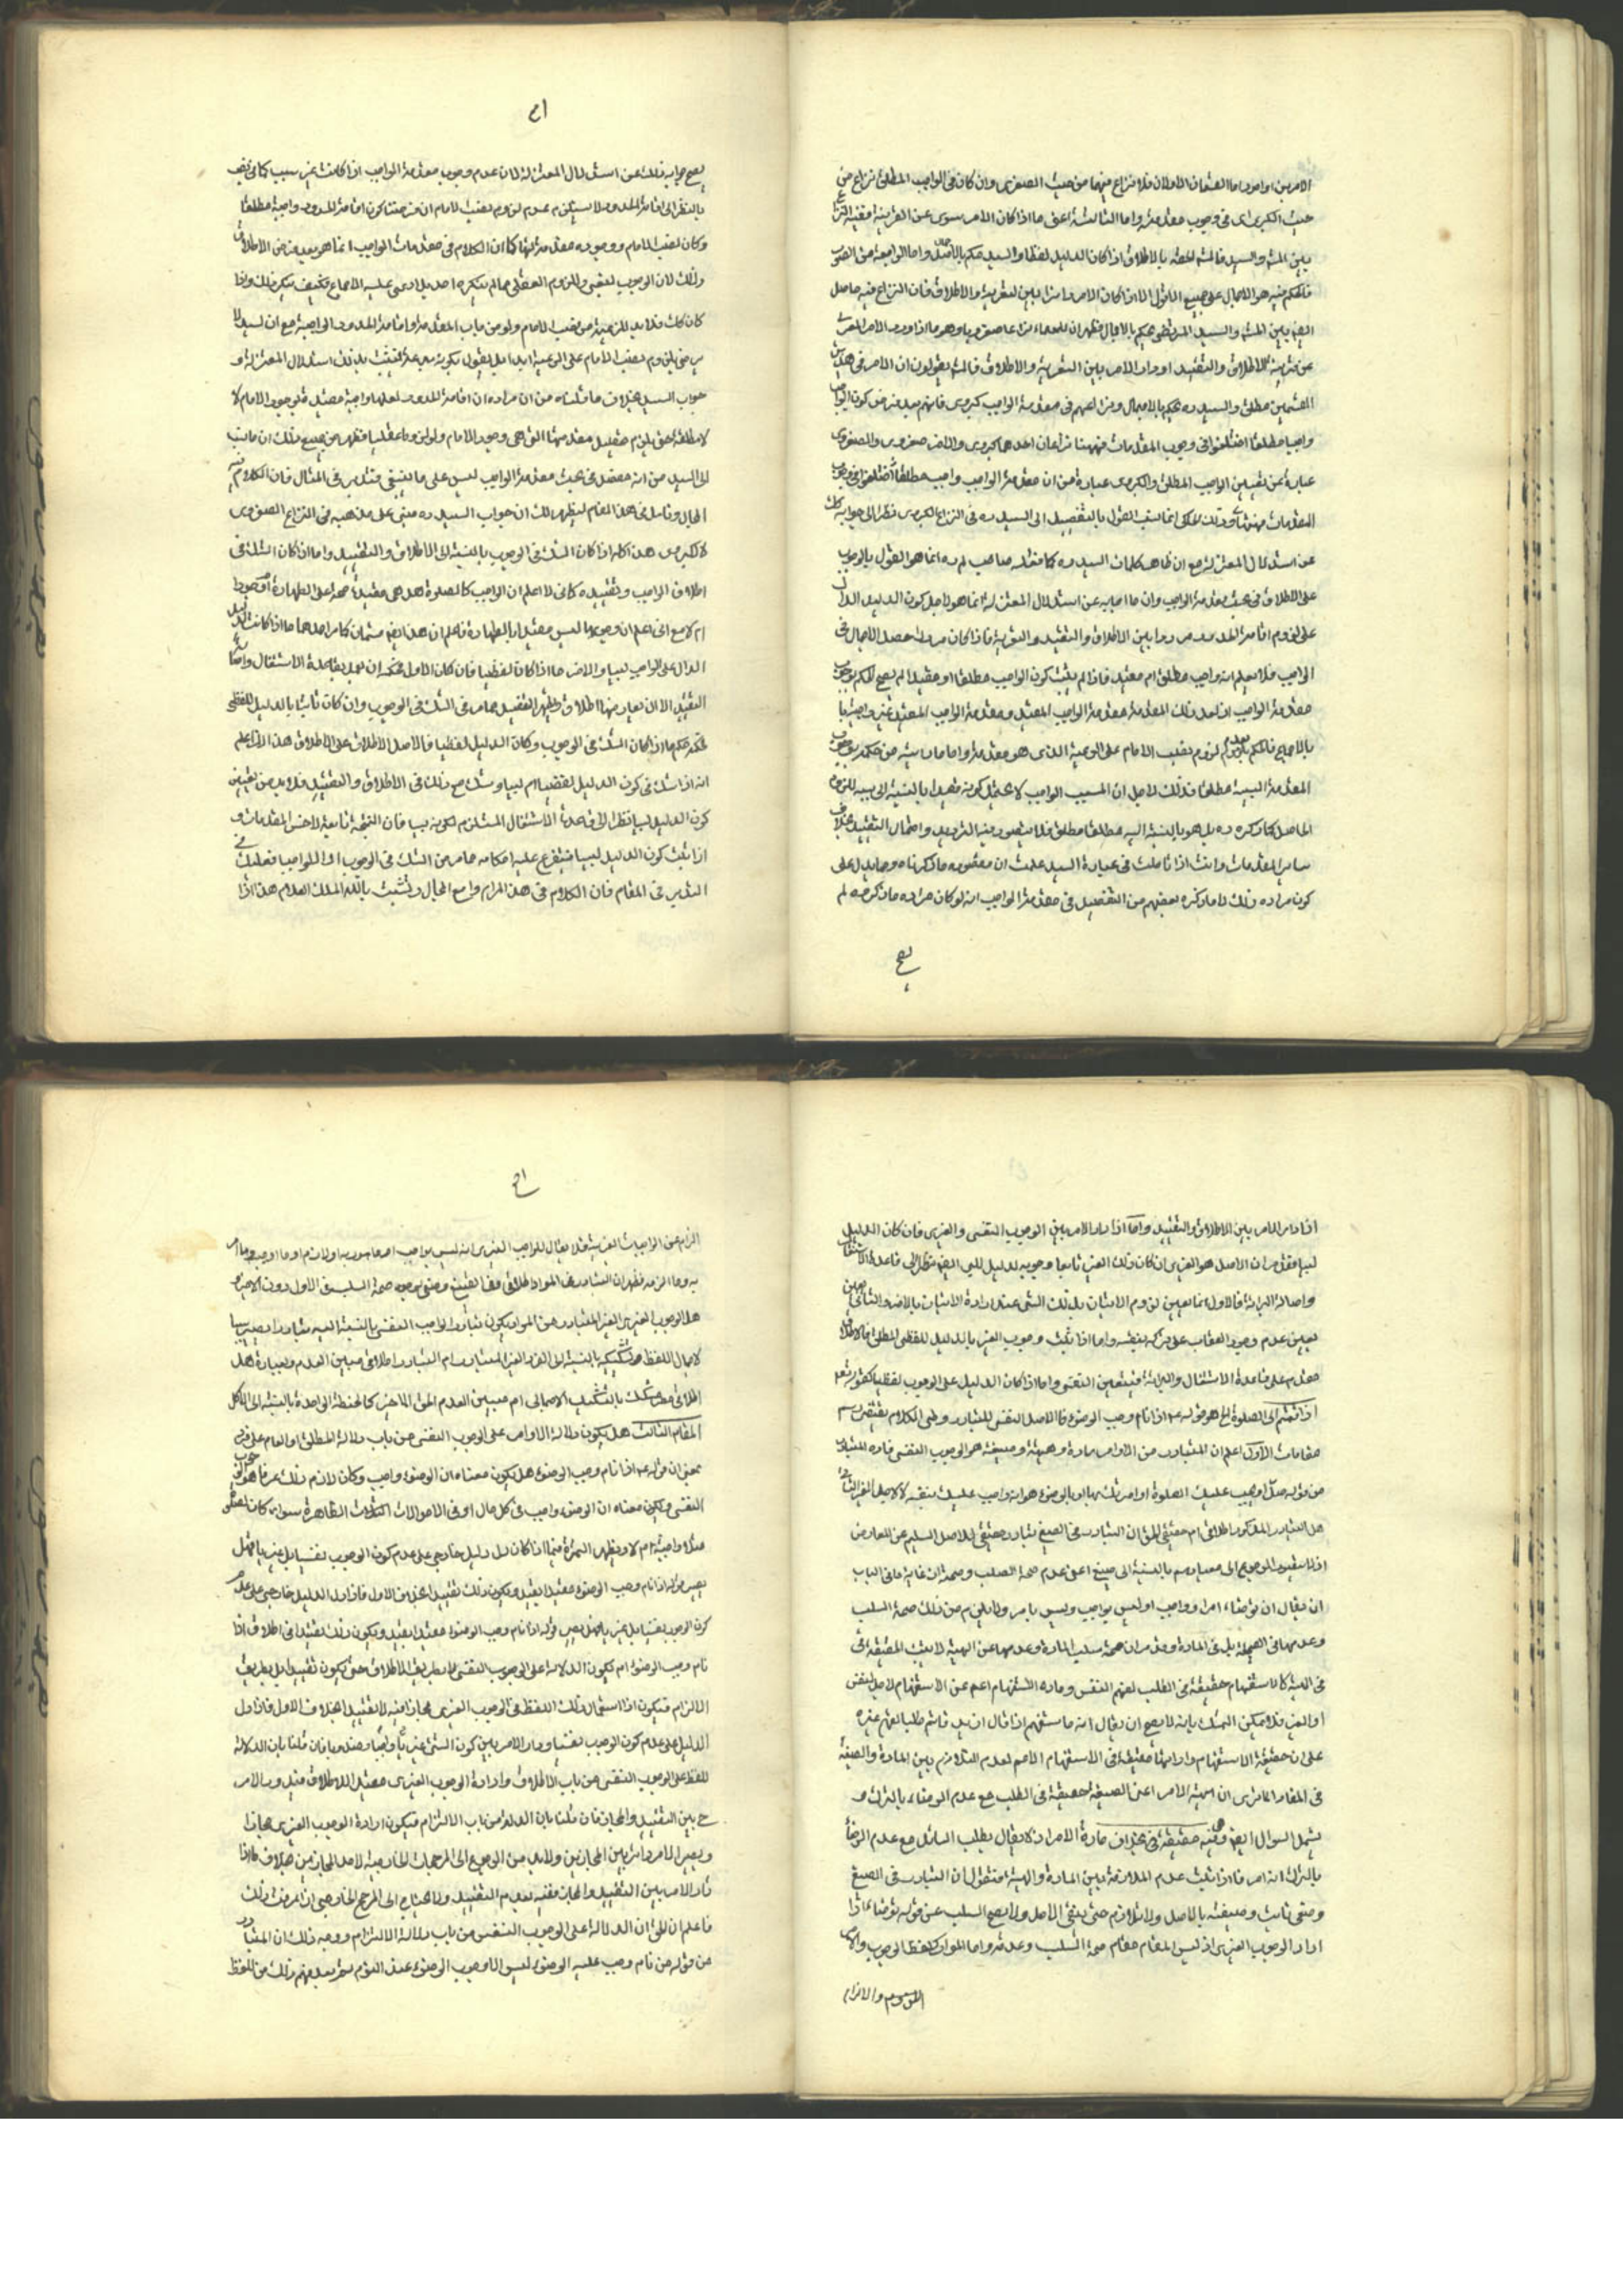 الامرين او امور اما القسمان الاولان فلا نزاع فيهما من حيث الصغرى وان كان في الواجب المطلق نزاع من
حيث الكبرى اى في وجوب مقدمته واما الثالثة اعنى ما اذا كان الامر سوى عن القرينة ففيه النزاع
بين المش والسيد فالمش بالاطلاق اذا كان الدليل لفظا والسيد حكم بالاجمال واما الرابعة من الصور
عن قرينة الاطلاق والتقييد او دار الامر بين التعرية والاطلاق فالمش يقولون ان الامر في هذين
القسمين مطلق والسيد ره يحكم بالاجمال ونزاعهم في مقدمة الواجب كبروى فانهم بعد فرض كون الواجب
واجبا مطلقا اختلفوا في وجوب المقدمات فههنا نزاعان احدهما كبروى والاخر صغروى والصغروى
عبارة عن تعيين الواجب المطلق والكبروى عبارة من ان مقدمة الواجب واجب مطلقا
عن استدلال المعتزلة مع ان ظاهر كلمات السيد ره كما نقله صاحب لم ره انما هو القول بالوجوب
على الاطلاق في بحث مقدمة الواجب وان ما اجاب به عن استدلال المعتزلة انما هو لاجل كون الدليل الدال
على لزوم اقامة الحدود مرددا بين الاطلاق والتقييد والتعرية فاذا كان مرددا حصل الاجمال في
الواجب فلا يعلم انه واجب مطلق ام مقيد فاذا لم يثبت كون الواجب مطلقا او مقيدا لم يصح الحكم بوجوب
مقدمة الواجب اذ لعل ذلك المقدمة مقدمة الواجب المقيد ومقدمة الواجب المقيد غير واجبة
بالاجماع فالحكم بعدم لزوم نصب الامام على الرعية الذى هو مقدمة واما ما من حكمه بوجوب
المقدمة السببية مطلقا فذلك لاجل ان المسبب الواجب لا يحتمل كونه مقيدا بالنسبة الى سببه للزوم
الحاصل كما ذكره ره بل هو بالنسبة اليه مطلقا مطلق فلا يتصور فيه الترديد واحتمال التقييد بخلاف
ساير المقدمات وانت اذا تاملت في عبارة السيد علمت ان مقصوده ما ذكرناه ومما يدل على
كون مراده ذلك لا ما ذكره بعضهم من التفصيل في مقدمة الواجب انه لو كان مراده ما ذكروه لم
يصح
يصح جوابه ذلك عن استدلال المعتزلة لان عدم وجوب مقدمة الواجب اذا كانت غير سبب كما في
بالنظر الى اقامة الحدود لا يستلزم عدم لزوم نصب الامام ان فرضنا كون اقامة الحدود واجبة مطلقا
وكان نصب الامام ووجوده مقدمة لها كما ان الكلام في مقدمات الواجب انما هو بعد فرض الاطلاق
وذلك لان الوجوب العقلى واللزوم العقلى مما لم ينكره احد بل ادعى عليه الاجماع فكيف ينكر ذلك واذا
كان كك فلا بد للرعية من نصب الامام ولو من باب المقدمة واقامة الحدود الواجبة مع ان السيد لا
يرضى بلزوم نصب الامام على الرعية ابدا بل يقول بكونه بدعة فيثبت بذلك استدلال المعتزلة و
جواب السيد بخلاف ما قلناه من ان مراده ان اقامة الحدود لعلها واجبة مقيدة بوجود الامام لا
لا مطلقة حتى يلزم تحصيل مقدمتها التى هى وجود الامام ولو لزوما عقليا فظهر من جميع ذلك ان ما نسب
الى السيد من انه مفصل في بحث مقدمة الواجب ليس على ما ينبغى فتدبر في المثال فان الكلام فيه
المجال وتامل في هذا المقام ليظهر لك ان جواب السيد ره مبنى على مذهبه في النزاع الصغروى
لا الكبروى هذا كله اذا كان الشك في الوجوب بالنسبة الى الاطلاق والتقييد واما اذا كان الشك في
اطلاق الواجب وتقييده كانى لا اعلم ان الواجب كالصلوة هل هى مقيدة صحة على الطهارة
ام لا مع انى اعلم ان وجوبها ليس مقيدا بالطهارة فاعلم ان هذا ايض قسمان كما مر احدهما ما اذا كان الدليل
الدال على الواجب لبيا والاخر ما اذا كان لفظيا فان كان الاول فحكمه ان نعمل بقاعدة الاشتغال
التقييد الا ان يعارضها اطلاق وقد ظهر التفصيل مما مر في الشك في الوجوب وان كان ثابتا بالدليل اللفظى
فحكمه حكم ما اذا كان الشك في الوجوب وكان الدليل لفظيا فالاصل الاطلاق على الاطلاق هذا ثم اعلم
انه اذا شك في كون الدليل لفظيا ام لبيا وشك مع ذلك في الاطلاق والتقييد فلا بد من تعيين
كون الدليل لبيا نظرا الى قاعدة الاشتغال المستلزم لكونه لبيا فان النتيجة تابعة لاخس المقدمات و
اذا ثبت كون الدليل لبيا فتفرع عليه احكامه مما مر من الشك في الوجوب او الواجب فعليك
التدبر في المقام فان الكلام في هذا المرام واسع المجال وتثبت بالله الملك العلام هذا اذا
اذا دار الامر بين الاطلاق والتقييد واما اذا دار الامر بين الوجوب النفسى والغيرى فان كان الدليل
لبيا فقد مر ان الاصل هو الغيرى ان كان ذلك الغير ثابتا وجوبه بدليل لبى ايض نظرا الى قاعدة الاشتغال
واصالة البرائة فالاول انما يعين لزوم الاتيان بذلك الشئ عند ارادة الاتيان بالاخر والثانى يعين
يعين عدم وجود العقاب على تركه بنفسه واما اذا ثبت وجوب الغير بالدليل اللفظى المطلق فالاطلاق
مقدم على قاعدة الاشتغال والبرائة فيتعين النفسى واما اذا كان الدليل على الوجوب لفظيا كقوله تعالى
اذا قمتم الى الصلوة الخ هو قوله ع اذا نام وجب الوضوء فالاصل النفسى للتبادر وطى الكلام يقتضى رسم
مقامات الاول اعلم ان المتبادر من الاوامر مادة وهيئة وصيغة هو الوجوب النفسى
من قوله صل او يجب عليك الصلوة او امرتك بها او بالوضوء هو انه واجب عليك بنفسه لا لاجل الغير الثانى
هل التبادر المذكور اطلاقى ام حقيقى الحق ان التبادر في الصيغ تبادر حقيقى للاصل السليم عن المعارض
ان يقال ان توضأ امر او واجب او ليس بواجب وليس بامر ولا يلزم من ذلك صحة السلب
وعدمها في الصيغة بل في المادة وقد مر ان صحة سلب المادة وعدمها عن الهيئة لا يثبت الحقيقة
او الغير فلا يمكن التمسك بانه لا يصح ان يقال انه ما استفهم اذا قال ازيد قائم طلبا لفهم غيره
في المقام الا ترى ان هيئة الامر اعنى الصيغة حقيقة في الطلب مع عدم الرضاء بالترك و
يشمل السؤال ايض حقيقة بخلاف مادة الامر اذ لا يقال لطلب السائل مع عدم الرضا
بالترك انه امر فاذا ثبت عدم الملازمة بين المادة والهيئة فنقول ان التبادر في الصيغ
وضعى ثابت وضعيته بالاصل ولا تلازم حتى ينفى الاصل ولا يصح السلب عن قوله توضأ اذا
اراد الوجوب الغيرى اذ ليس المقام مقام صحة السلب وعدمه واما المواد كلفظ الوجوب والامر
اللزوم والالزام
الزام عن الواجبات الغيرية فلا يقال للواجب الغيرى انه ليس بواجب او مامور به او لازم او ما اوجبه وما امر
به وما الزمه فظهر ان التبادر في المواد اطلاقى وفي الصيغ وضعى بوجود صحة السلب في الاول دون الاخير
هل الوجوب الغيرى الغير المتبادر من المواد يكون تبادر الواجب النفسى بالنسبة اليه تبادرا يصير سببا
لاجمال اللفظ وتشكيكه بالنسبة الى الفرد الغير المتبادر ام التبادر اطلاقى مبين العدم وبعبارة هل
اطلاقى مشكك بالتشكيك الاجمالى ام مبين العدم الحق الاخير كالحنطة الواحدة بالنسبة الى الاكل
المقام الثالث هل يكون دلالة الاوامر على الوجوب النفسى من باب دلالة المطلق او العام على فرد
بمعنى ان قوله ع اذا نام وجب الوضوء هل يكون معناه ان الوضوء واجب وكان لازم ذلك عرفا هو الوجوب
النفسى او يكون معناه ان الوضوء واجب في كل حال او في الاحوالات الظاهرة سواء كان الصلوة
مثلا واجبة ام لا ويظهر الثمرة فيما اذا كان دل دليل خارجى على عدم كون الوجوب نفسيا بل غيريا فهل
يصير قوله اذا نام وجب الوضوء مقيدا بقيد ويكون ذلك تقييدا فعلى الاول فاذا دل الدليل خارجى على عدم
كون الوجوب نفسيا بل غيريا فهل يصير قوله اذا نام وجب الوضوء مقيدا بقيد ويكون ذلك تقييدا في اطلاق اذا
نام وجب الوضوء ام يكون الدلالة على الوجوب النفسى لا بطريق الاطلاق حتى يكون تقييدا بل بطريق
الالزام فيكون اذا استعمال ذلك اللفظ في الوجوب الغيرى مجازا فيه لا تقييدا بخلاف الاول فاذا دل
الدليل على عدم كون الوجوب نفسيا ودار الامر بين كون الشئ غيريا واجبا ومندوبا فان قلنا بان الدلالة
للفظ على الوجوب النفسى من باب الاطلاق وارادة الوجوب الغيرى مقيد للاطلاق فيدور الامر
ح بين التقييد والمجاز فان قلنا بان الدلالة من باب الالتزام فيكون ارادة الوجوب الغيرى مجازا
ويصير الامر دائرا بين المجازين ولا بد من الرجوع الى المرجحات الخارجية لاحد المجازين بخلاف ما اذا
دار الامر بين التقييد والمجاز ففيه يقدم التقييد ولا يحتاج الى المرجح الخارجى اذا عرفت ذلك
فاعلم ان الحق ان الدلالة على الوجوب النفسى من باب دلالة الالتزام ووجه ذلك ان المتبادر
من قوله من نام وجب عليه الوضوء ليس الا وجوب الوضوء عند النوم ثم بعد فهم ذلك من اللفظ